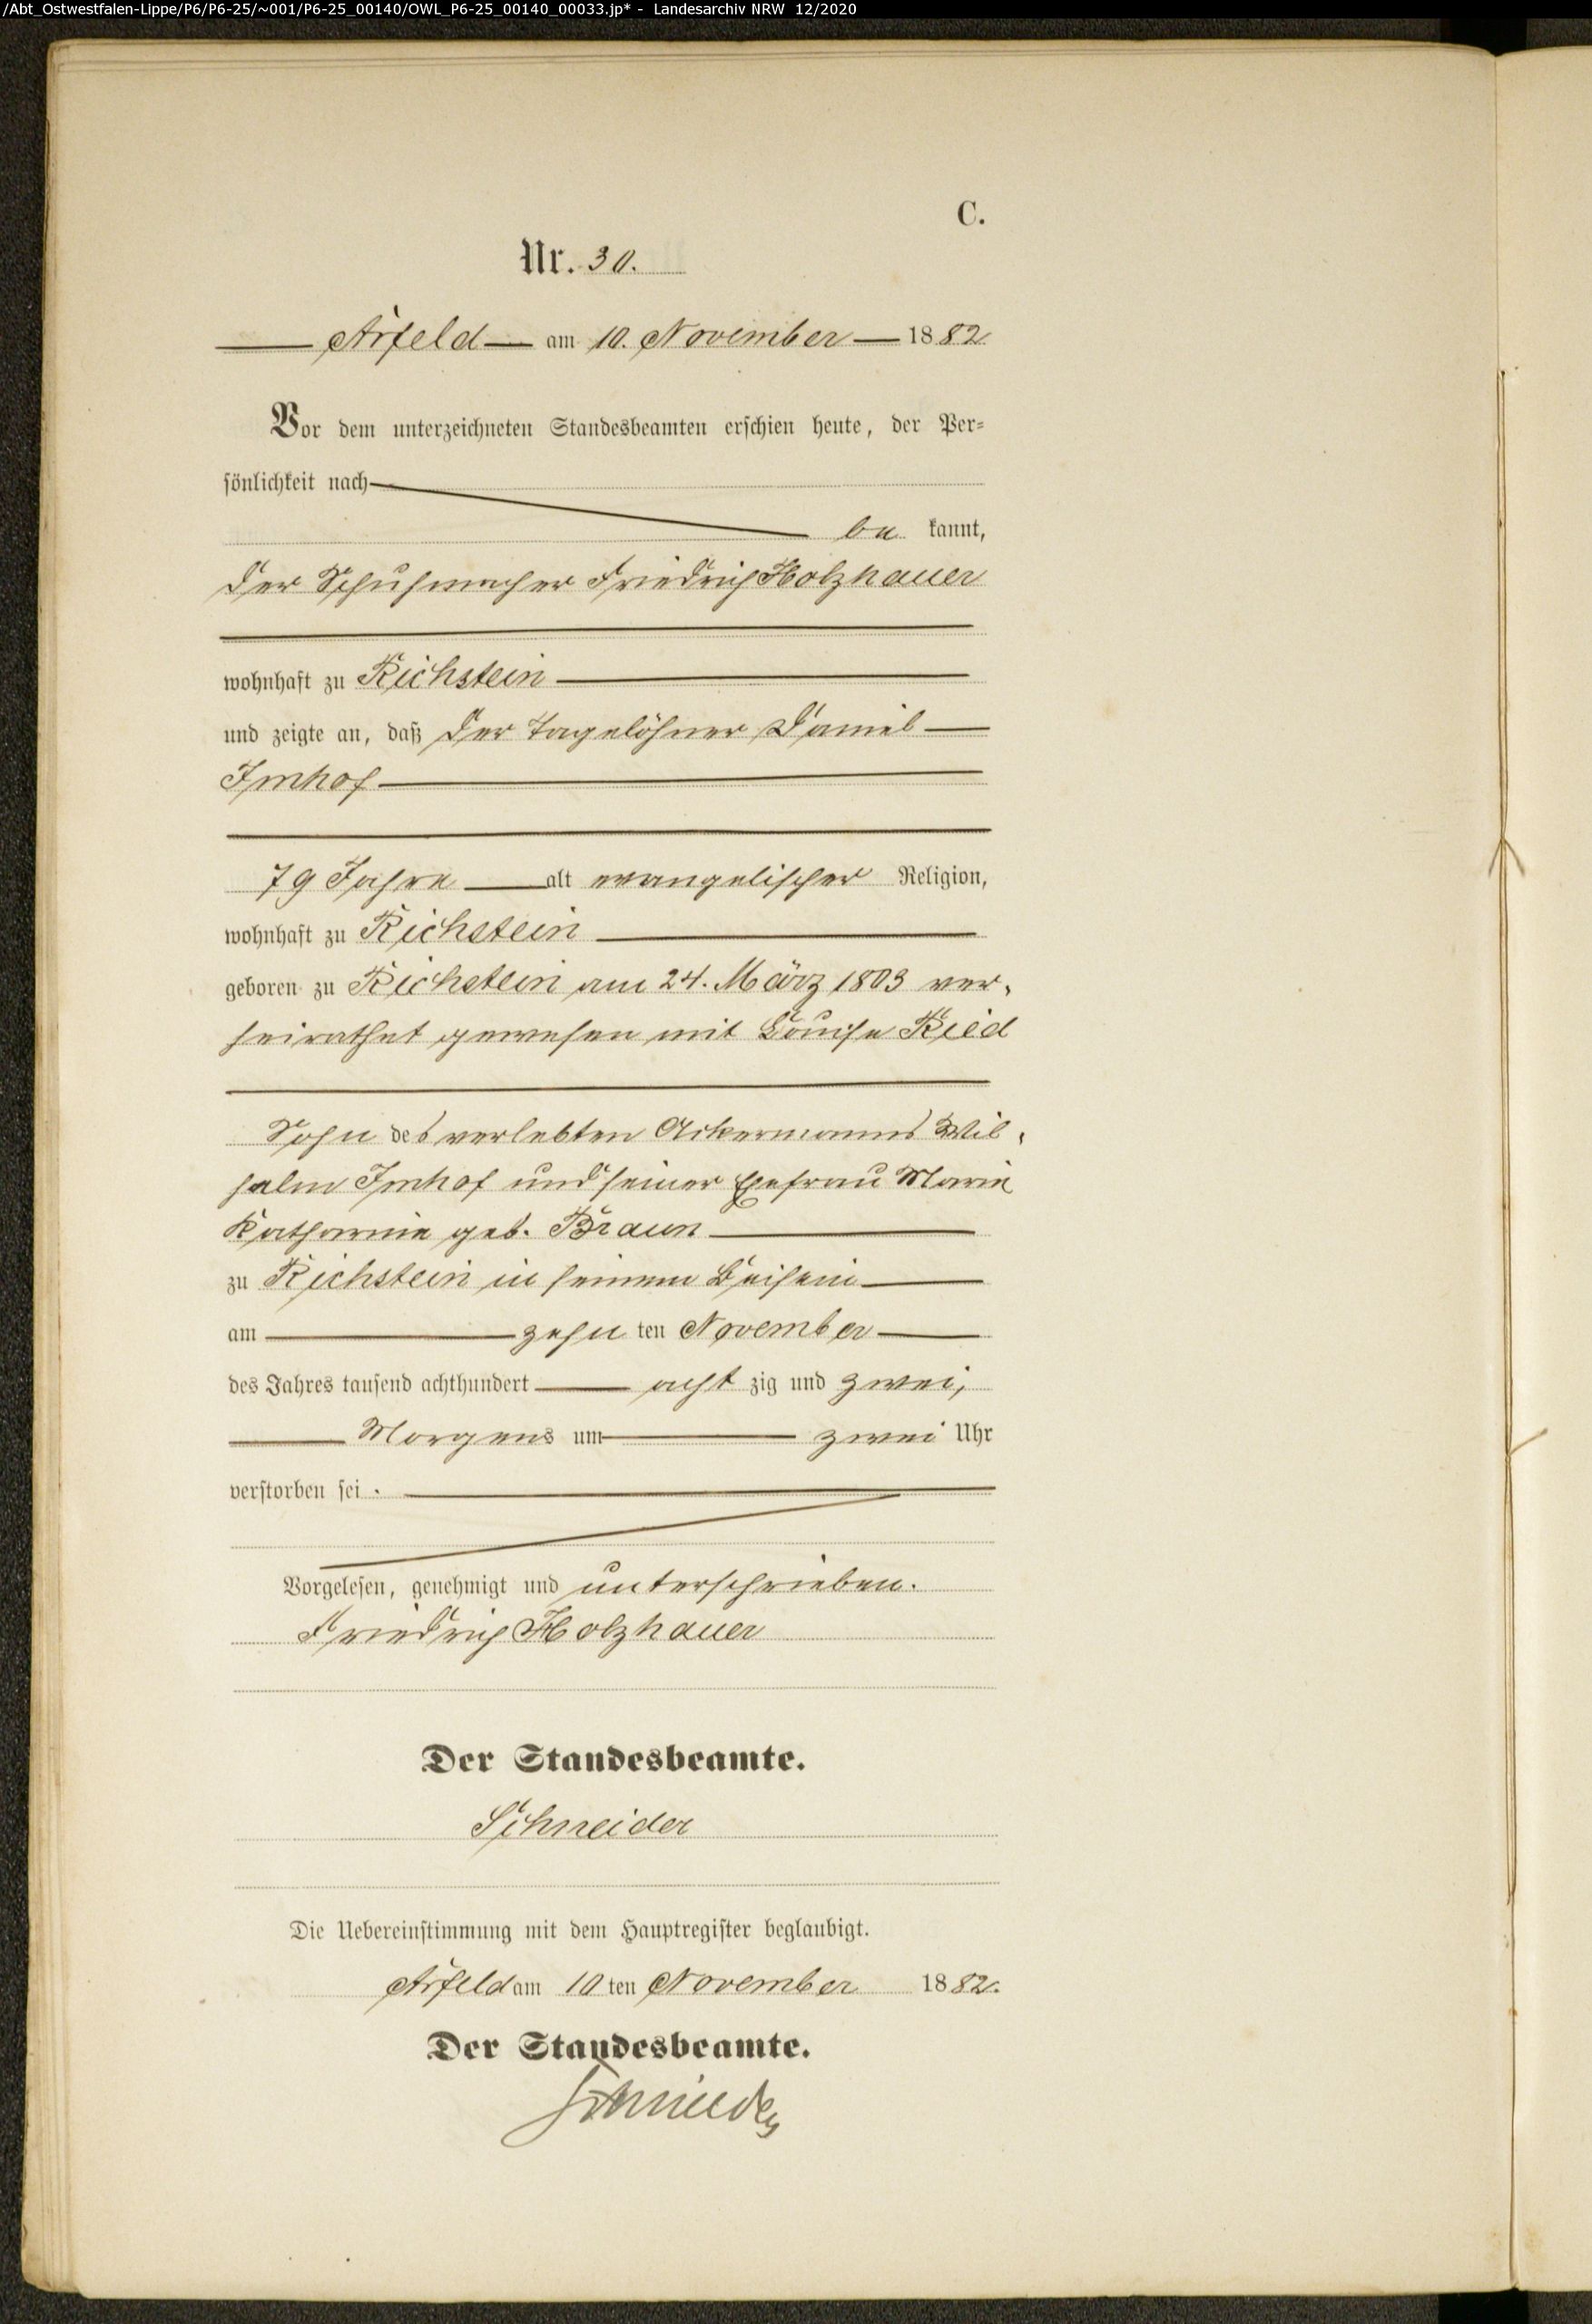 /Abt_Ostwestfalen-Lippe/P6/P6-25/~001/P6-25_00140/OWL_P6-25_00140_00033.jp* - Landesarchiv NRW 12/2020
C.
Nr. 30.
Arfeld am 10. November 1882
Vor dem unterzeichneten Standesbeamten erschien heute, der Per-
sönlichkeit nach
be kannt,
der Schuhmacher Friedrich Holzhauer
wohnhaft zu Richstein
und zeigte an, daß der Tagelöhner Daniel
Imhof
79 Jahre alt evangelischer Religion,
wohnhaft zu Richstein
geboren zu Richstein am 24. März 1803 ver-
heirathet gewesen mit Louise Ried
Sohn des verlebten Ackermanns Wil-
helm Imhof und seiner Ehefrau Marie
Katharine geb. Braun
zu Richstein in seinem Beisein
am zehn ten November
des Jahres tausend achthundert acht zig und zwei,
Morgens um zwei Uhr
verstorben sei.
Vorgelesen, genehmigt und unterschrieben.
Friedrich Holzhauer
Der Standesbeamte.
Schneider
Die Uebereinstimmung mit dem Hauptregister beglaubigt.
Arfeld am 10 ten November 1882.
Der Standesbeamte.
Schneider